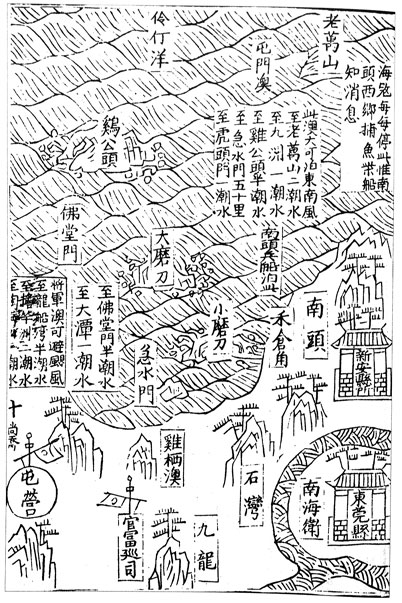 老萬山
海寇每每停此惟南
頭西鄉捕魚柴船
知消息
屯門澳
伶仃洋
此澳大可泊東南風
至老萬山二潮水
至九洲一潮水
至雞公頭半潮水
至急水門五十里
至虎頭門一潮水
鷄公頭
佛堂門
南頭兵船泊此
大磨刀
小磨刀
至佛堂門半潮水
至大潭一潮水
將軍澳可避颶風
至龍船灣半潮水
南頭
新安縣所
禾倉角
急水門
雞栖澳
石灣
南海衛
東莞縣
九龍
官富巡司
屯營